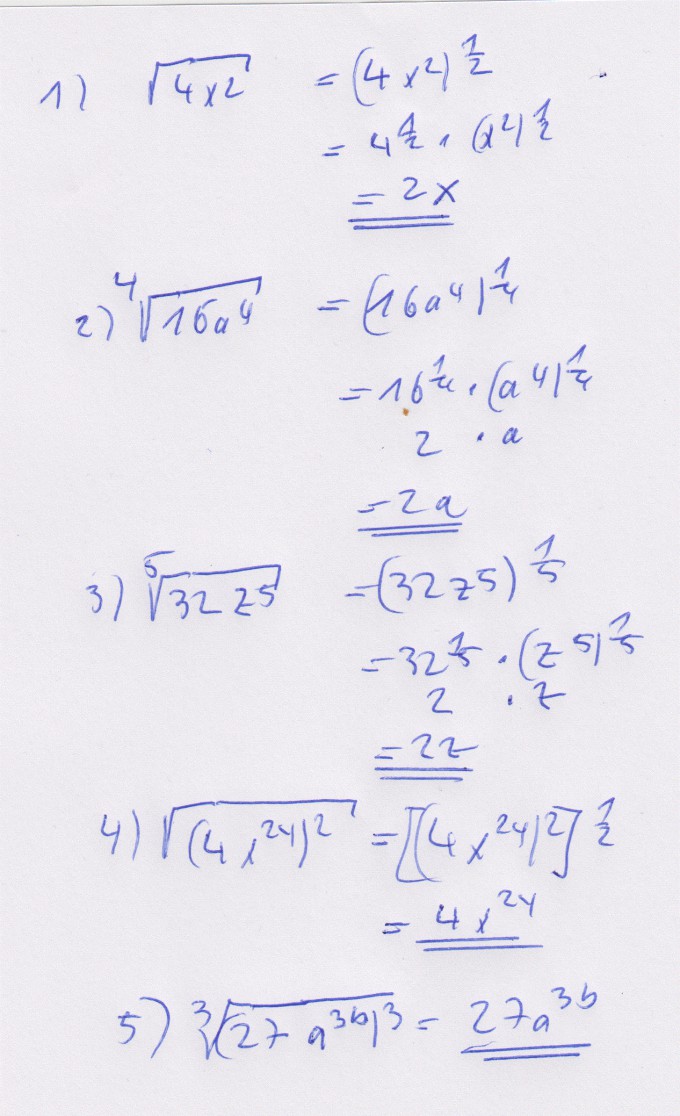 1) √4x² = (4x²)^½
= 4^½ · (x²)^½
= 2x
2) ⁴√16a⁴ = (16a⁴)^¼
= 16^¼ · (a⁴)^¼
2 · a
= 2a
3) ⁵√32z⁵ = (32z⁵)^⅕
= 32^⅕ · (z⁵)^⅕
2 · z
= 2z
4) √(4x^2y)² = [(4x^2y)²]^½
= 4x^2y
5) ³√(27a^3b)³ = 27a^3b